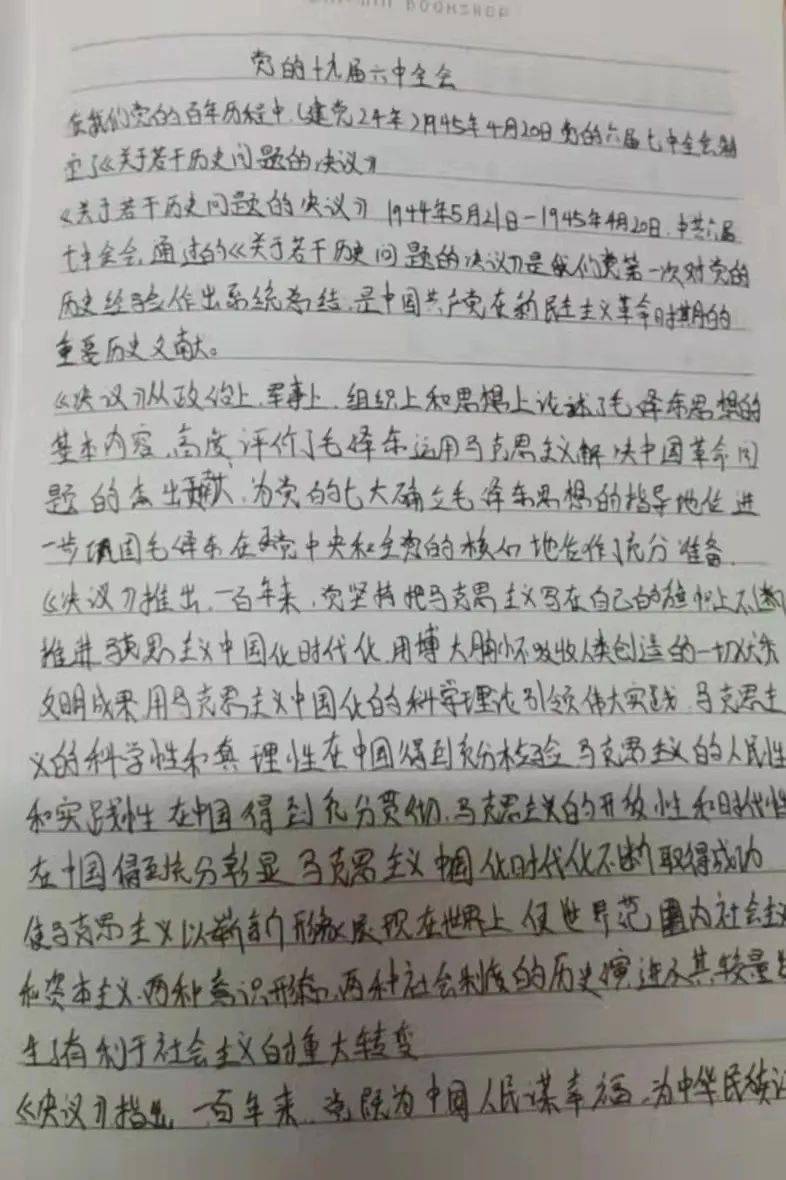 BOOKSHOP
党的十九届六中全会
在我们党的百年历程中,(建党24年)1945年4月20日党的六届七中全会制
定了《关于若干历史问题的决议》
《关于若干历史问题的决议》1944年5月21日-1945年4月20日.中共六届
七中全会,通过的《关于若干历史问题的决议》是我们党第一次对党的
历史经验作出系统总结.是中国共产党在新民主主义革命时期的
重要历史文献。
《决议》从政治上.军事上.组织上和思想上论述了毛泽东思想的
基本内容,高度评价了毛泽东运用马克思主义解决中国革命问
题的杰出贡献,为党的七大确立毛泽东思想的指导地位进
一步巩固毛泽东在党中央和全党的核心地位作了充分准备.
《决议》推出,一百年来,党坚持把马克思主义写在自己的旗帜上不断
推进马克思主义中国化时代化,用博大胸怀吸收人类创造的一切优秀
文明成果用马克思主义中国化的科学理论引领伟大实践.马克思主
义的科学性和真理性在中国得到充分检验,马克思主义的人民性
和实践性在中国得到充分贯彻.马克思主义的开放性和时代性
在中国得到充分彰显马克思主义中国化时代化不断取得成功
使马克思主义以崭新的形象展现在世界上,使世界范围内社会主义
和资本主义.两种意识形态,两种社会制度的历史演进及其较量发
生了有利于社会主义的重大转变
《决议》指出,一百年来,党既为中国人民谋幸福,为中华民族